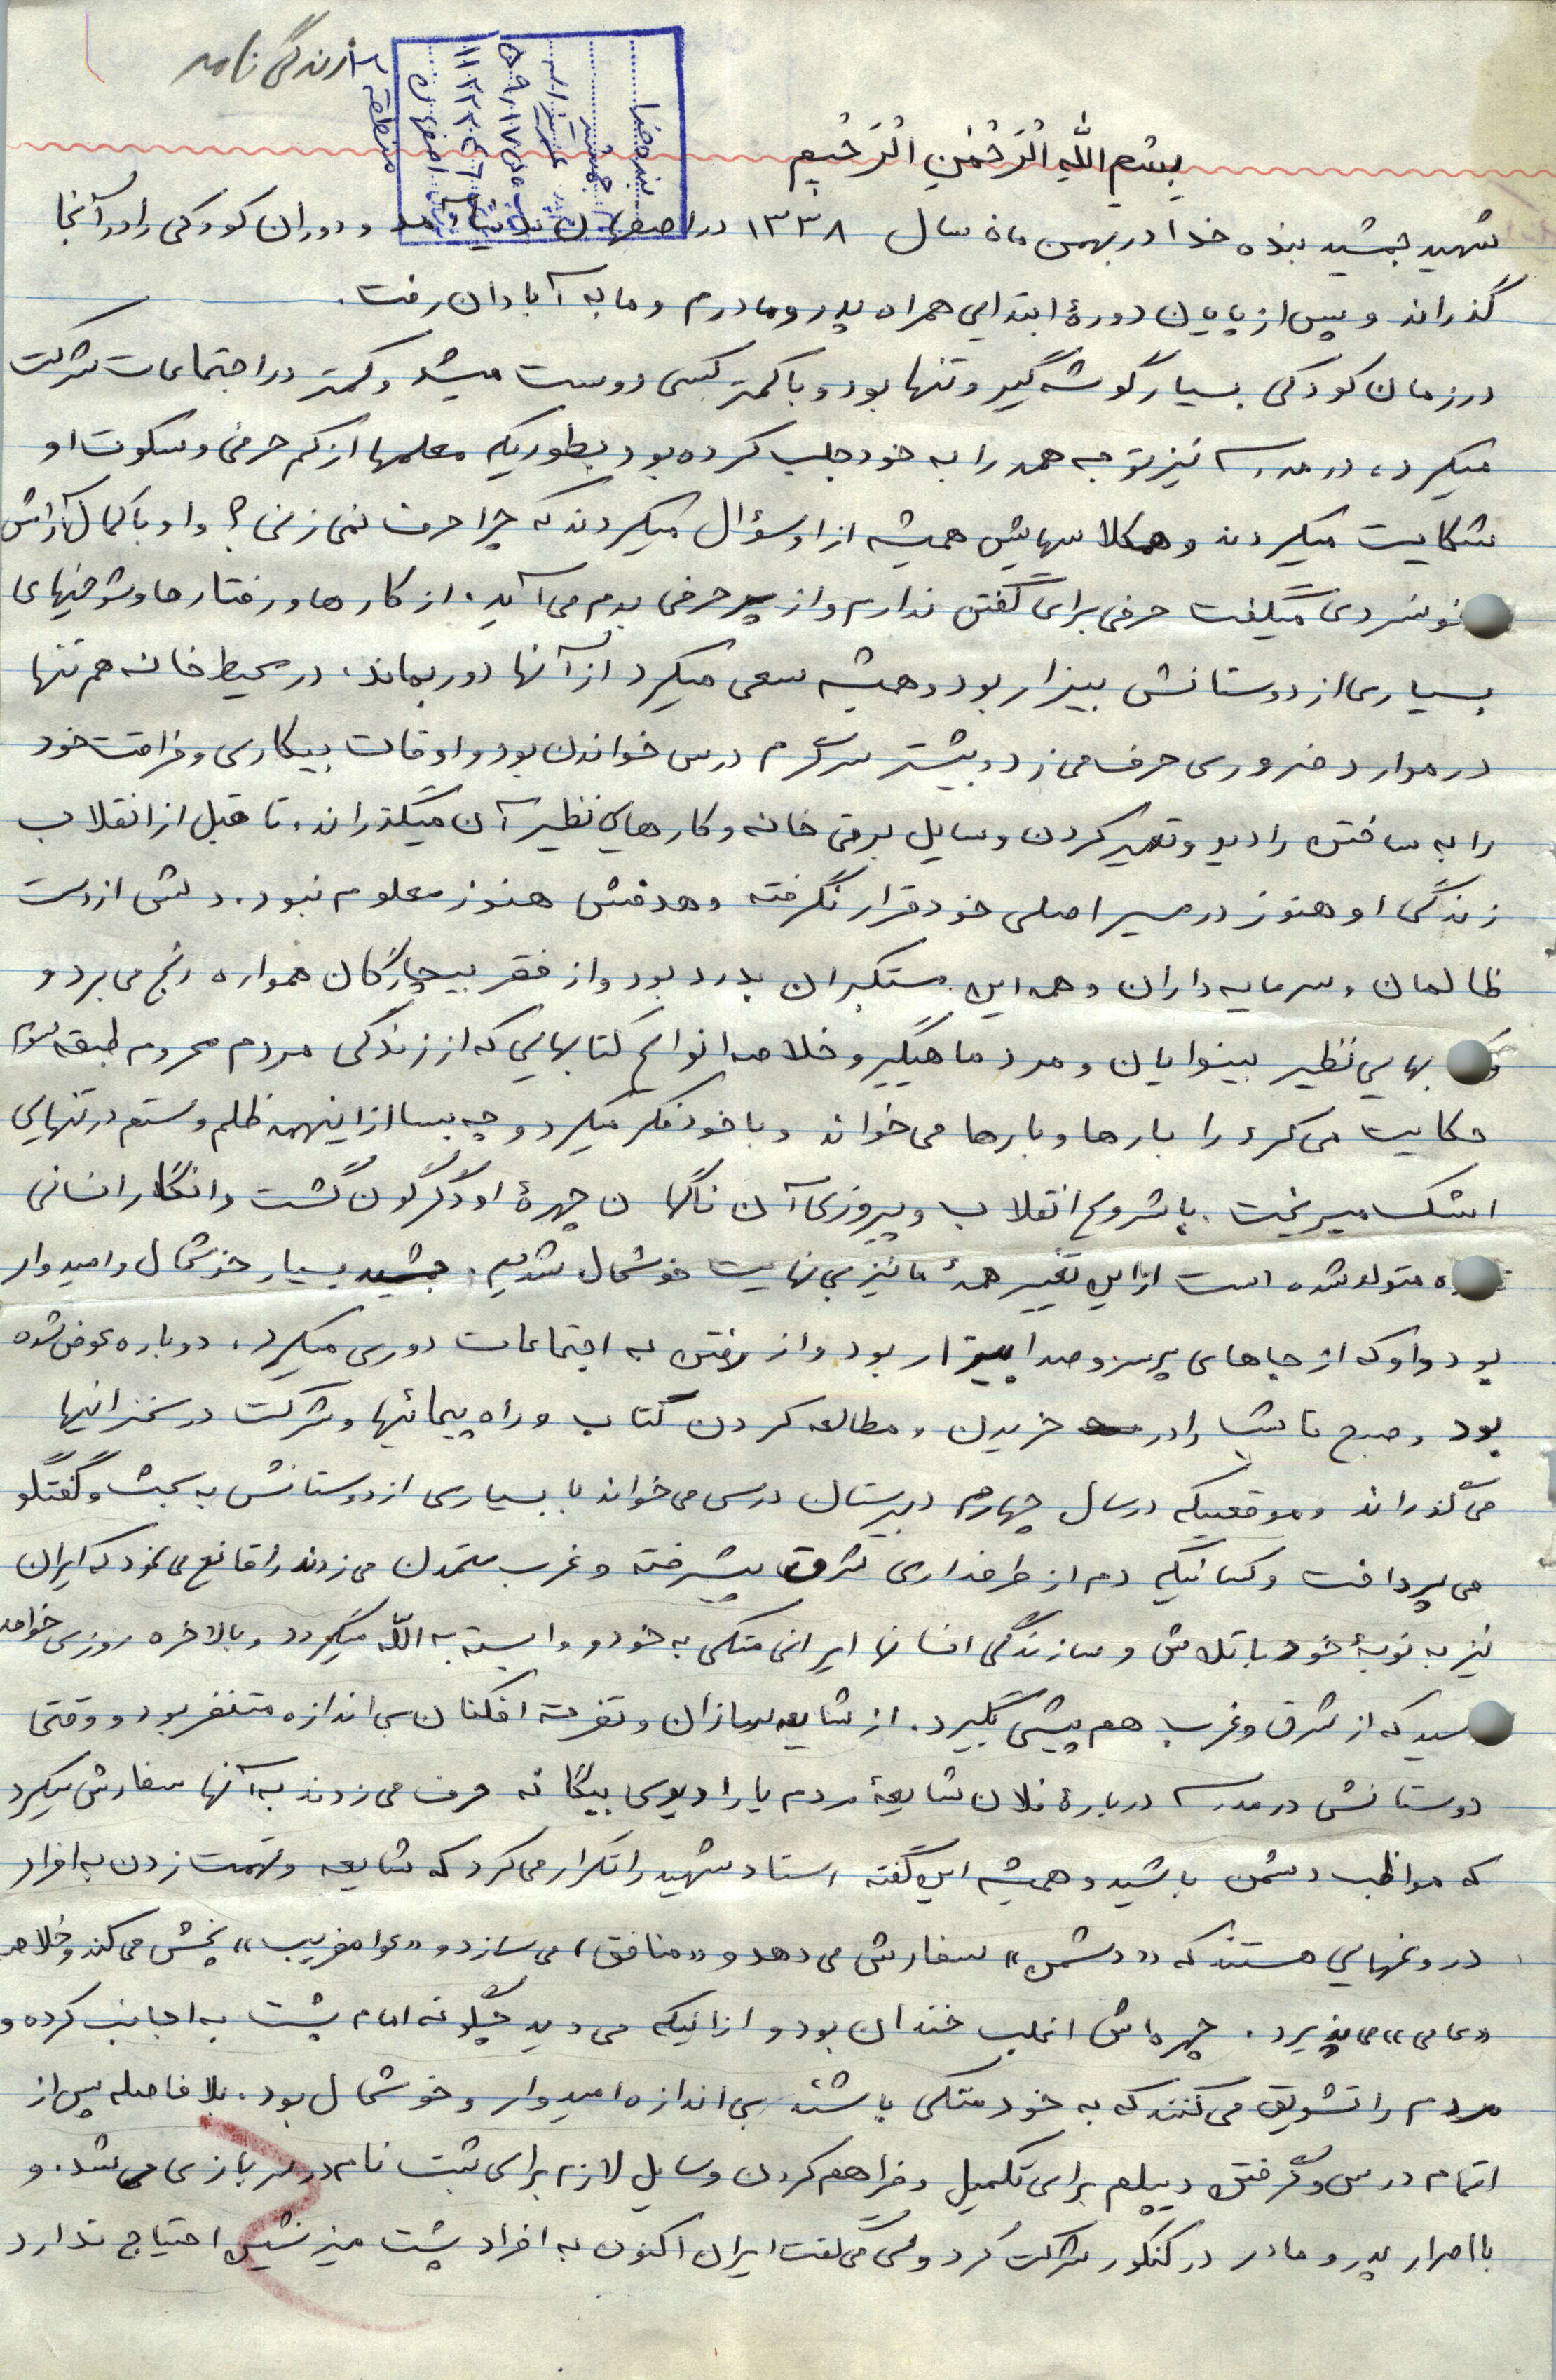 زندگی نامه
منطقه
بنده خدا
جمشید
۵۹/۱۷
۱۱۲۲۲۰۶۶
اصفهان
بسم الله الرحمن الرحیم
شهید جمشید بنده خدا در بهمن ماه سال ۱۳۳۸ در اصفهان بدنیا آمد و دوران کودکی را در آنجا
گذراند و پس از پایان دورهٔ ابتدایی همراه پدر و مادرم و ما به آبادان رفت.
در زمان کودکی بسیار گوشه گیر و تنها بود و با کمتر کسی دوست میشد و کمتر در اجتماعات شرکت
میکرد، در مدرسه نیز توجه همه را به خود جلب کرده بود بطوریکه معلمها از کم حرفی و سکوت او
شکایت میکردند و همکلاسهایش همیشه از او سؤال میکردند که چرا حرف نمی زنی؟ و او با کمال آرامش
خونسردی میگفت حرفی برای گفتن ندارم و از پر حرفی بدم می آید. از کارها و رفتارها و شوخیهای
بسیاری از دوستانش بیزار بود و همیشه سعی میکرد از آنها دور بماند. در محیط خانه هم تنها
در موارد ضروری حرف می زد و بیشتر سرگرم درس خواندن بود و اوقات بیکاری و فراغت خود
را به ساختن رادیو و تعمیر کردن وسایل برقی خانه و کارهایی نظیر آن میگذراند. تا قبل از انقلاب
زندگی او هنوز در مسیر اصلی خود قرار نگرفته و هدفش هنوز معلوم نبود. دلش از دست
ظالمان و سرمایه داران و همه این مستکبران بدرد بود و از فقر بیچارگان همواره رنج می برد و
بهایی نظیر بینوایان و مرد ماهیگیر و خلاصه انواع کتابهایی که از زندگی مردم محروم طبقه سوم
حکایت می کرد را بارها و بارها می خواند و با خود فکر میکرد و چه بسا از اینهمه ظلم و ستم در تنهایی
اشک میریخت. با شروع انقلاب و پیروزی آن ناگهان چهرهٔ او دگرگون گشت و انگار انسانی
متولد شده است از این تغییر همهٔ ما نیز بی نهایت خوشحال شدیم. جمشید بسیار خوشحال و امیدوار
بود و او که از جاهای پرسروصدا بیزار بود و از رفتن به اجتماعات دوری میکرد، دوباره عوض شده
بود و صبح تا شب را در خریدن و مطالعه کردن کتاب و راه پیمائیها و شرکت در سخنرانیها
می گذراند و موقعیکه در سال چهارم دبیرستان درس می خواند با بسیاری از دوستانش به بحث و گفتگو
می پرداخت و کسانیکه دم از طرفداری شرق پیشرفته و غرب متمدن می زدند را قانع می نمود که ایران
نیز به نوبهٔ خود با تلاش و سازندگی انسانها ایرانی متکی به خود و وابسته به الله میگردد و بالاخره روزی خواهد
رسید که از شرق و غرب هم پیشی بگیرد. از شایعه سازان و تفرقه افکنان بی اندازه متنفر بود و وقتی
دوستانش در مدرسه دربارهٔ فلان شایعهٔ مردم یا رادیوی بیگانه حرف می زدند به آنها سفارش میکرد
که مواظب دشمن باشید و همیشه این گفته استاد شهید را تکرار می کرد که شایعه و تهمت زدن به افراد
دروغهایی هستند که «دشمن» سفارش می دهد و «منافق» می سازد و «عوامفریب» پخش می کند و خلاصه
«عامی» می پذیرد. چهره اش اغلب خندان بود و از اینکه می دید چگونه امام پشت به اجانب کرده و
مردم را تشویق می کنند که به خود متکی باشند بی اندازه امیدوار و خوشحال بود. بلافاصله پس از
اتمام درس و گرفتن دیپلم برای تکمیل و فراهم کردن وسایل لازم برای ثبت نام در سربازی می شد. و
با اصرار پدر و مادر در کنکور شرکت کرد ولی می گفت ایران اکنون به افراد پشت میز نشین احتیاج ندارد